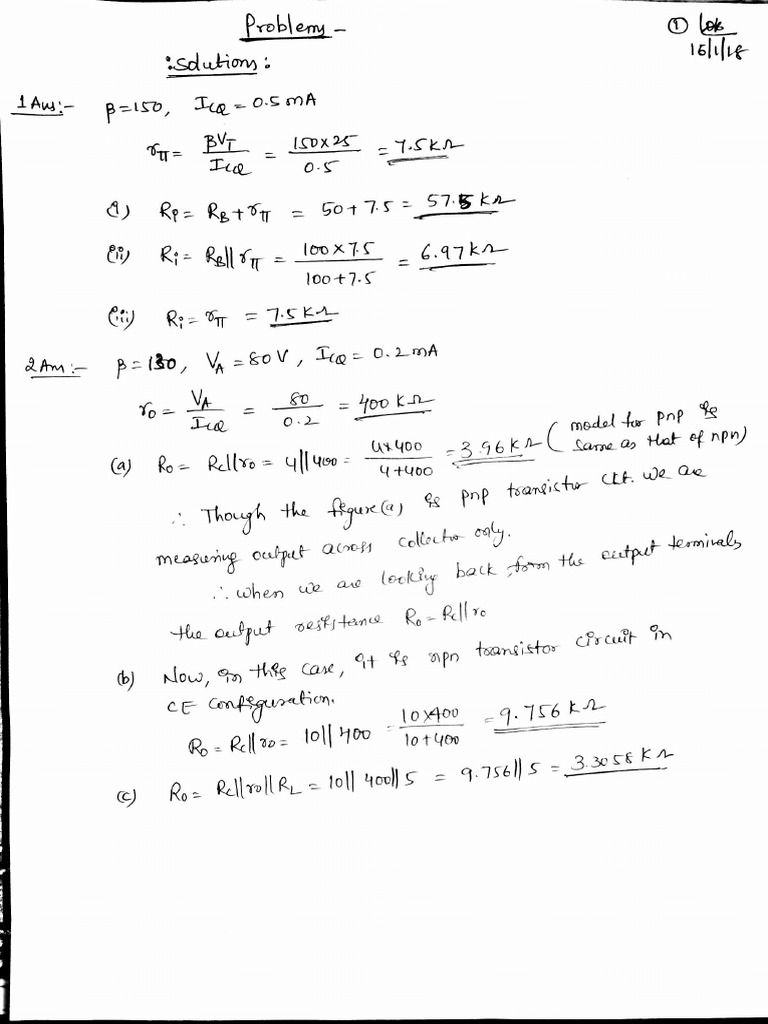 Problems -
① Lok
15/1/18
:Solutions:
1 Ans:- β=150, ICQ = 0.5 mA
rπ = βVT / ICQ = 150×25 / 0.5 = 7.5 kΩ
(i) Ri = RB + rπ = 50 + 7.5 = 57.5 kΩ
(ii) Ri = RB || rπ = 100×7.5 / 100+7.5 = 6.97 kΩ
(iii) Ri = rπ = 7.5 kΩ
2 Ans:- β=130, VA = 80 V, ICQ = 0.2 mA
ro = VA / ICQ = 80 / 0.2 = 400 kΩ
(a) Ro = Rc||ro = 4||400 = 4×400 / 4+400 = 3.96 kΩ (model for pnp is same as that of npn)
∴ Though the figure(a) is pnp transistor ckt. we are
measuring output across collector only.
∴ when we are looking back from the output terminals
the output resistance Ro = Rc||ro
(b) Now, in this case, it is npn transistor circuit in
CE configuration.
Ro = Rc||ro = 10||400 = 10×400 / 10+400 = 9.756 kΩ
(c) Ro = Rc||ro||RL = 10||400||5 = 9.756||5 = 3.3058 kΩ